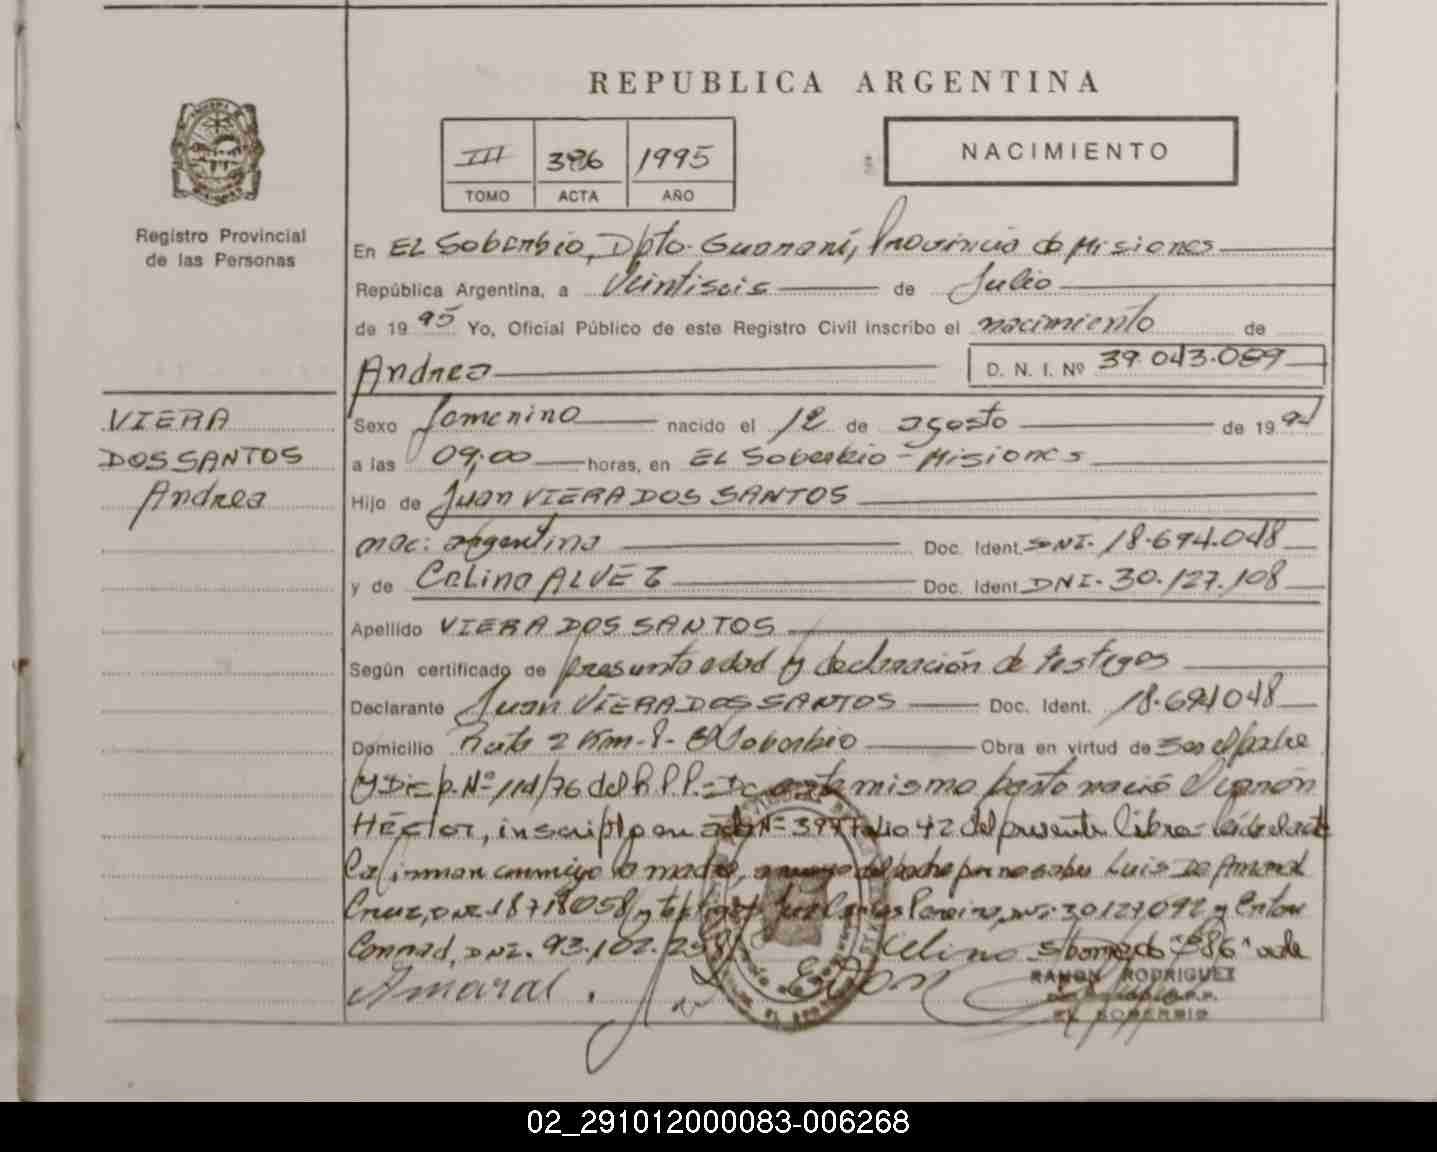 REPUBLICA ARGENTINA
III 396 1995
TOMO ACTA AÑO
NACIMIENTO
Registro Provincial
de las Personas
En EL Soberbio, Dpto. Guaraní, Provincia de Misiones
República Argentina, a Veintiseis de Julio
de 1995 Yo, Oficial Público de este Registro Civil inscribo el nacimiento de
Andrea D. N. I. Nº 39.043.089
VIERA
DOS SANTOS
Andrea
Sexo femenino nacido el 12 de agosto de 19
a las 09,00 horas, en EL Soberbio - Misiones
Hijo de Juan VIERA DOS SANTOS
nac: argentina Doc. Ident. DNI. 18.694.048
y de Celina ALVEZ Doc. Ident. DNI. 30.127.108
Apellido VIERA DOS SANTOS
Según certificado de presunta edad y declaración de testigos
Declarante Juan VIERA DOS SANTOS Doc. Ident. 18.694048
Domicilio Ruta 2 Km- El Soberbio Obra en virtud de ser el padre
y Disp. Nº 114/76 del R.P.P.= De este mismo parto nació
HÉCTOR, inscripto en acta Nº 397 folio 42 del presente Libro- leída el acta
la firman conmigo la madre, a ruego del padre por no saber Luis Do Amaral
Cruz, DNI. 18718058 y testigos Carlos Pereira, DNI. 30127092 y
Conrad, DNI. 93.102.258 Celina S/borrado "396" vale
Amaral.
RAMON RODRIGUEZ
EL SOBERBIO
02_291012000083-006268